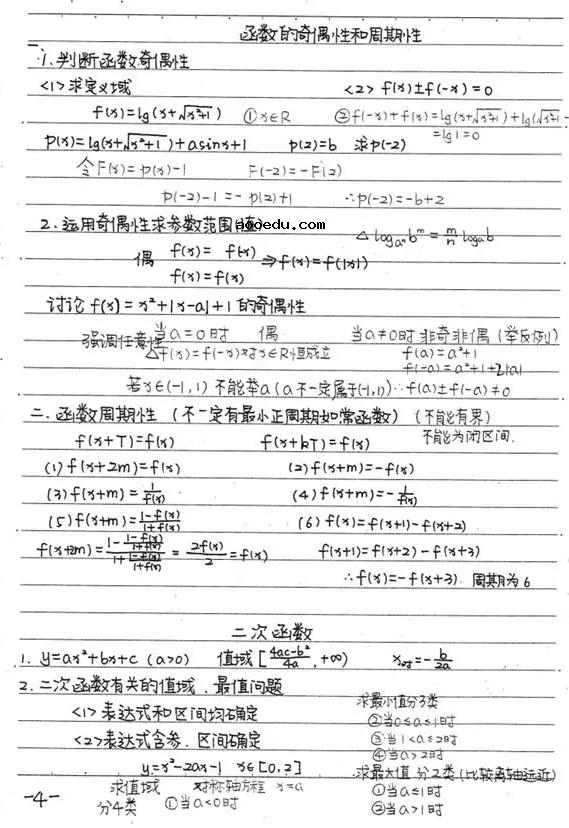 函数的奇偶性和周期性
1.判断函数奇偶性
<1>求定义域 <2> f(x)±f(-x)=0
f(x)=lg(x+√x²+1) ①x∈R ②f(-x)+f(x)=lg(x+√x²+1)+lg(√x²+1-
=lg1=0
p(x)=lg(x+√x²+1)+asinx+1 p(2)=b 求p(-2)
令F(x)=p(x)-1 F(-2)=-F(2)
p(-2)-1=-p(2)+1 ∴p(-2)=-b+2
2.运用奇偶性求参数范围(值)
aooedu.com
△ log_{aⁿ}b^m=m/n log_a b
偶 f(x)=f(-x) ⇒f(x)=f(|x|)
f(x)=f(x)
讨论 f(x)=x²+|x-a|+1 的奇偶性
强调任意性 当a=0时 偶 当a≠0时 非奇非偶(举反例)
△f(x)=f(-x)对x∈R恒成立 f(a)=a²+1
f(-a)=a²+1+2|a|
若x∈(-1,1) 不能举a(a不一定属于(-1,1)) ∴f(a)±f(-a)≠0
二.函数周期性(不一定有最小正周期如常函数)(不能有界)
不能为闭区间.
f(x+T)=f(x) f(x+kT)=f(x)
(1) f(x+2m)=f(x) (2) f(x+m)=-f(x)
(3) f(x+m)=1/f(x) (4) f(x+m)=-1/f(x)
(5) f(x+m)=1-f(x)/1+f(x) (6) f(x)=f(x+1)-f(x+2)
f(x+2m)=(1-(1-f(x))/(1+f(x)))/(1+(1-f(x))/(1+f(x)))=2f(x)/2=f(x) f(x+1)=f(x+2)-f(x+3)
∴f(x)=-f(x+3) 周期为6
二次函数
1. y=ax²+bx+c (a>0) 值域[4ac-b²/4a,+∞) x对=-b/2a
2.二次函数有关的值域、最值问题
<1>表达式和区间均确定
<2>表达式含参、区间确定
y=x²-2ax-1 x∈[0,2]
求值域 对称轴方程 x=a
分4类 ①当a<0时
求最小值分3类
②当0≤a≤1时
③当1<a≤2时
④当a>2时
求最大值 分2类(比较离轴远近)
①当a≤1时
②当a>1时
-4-